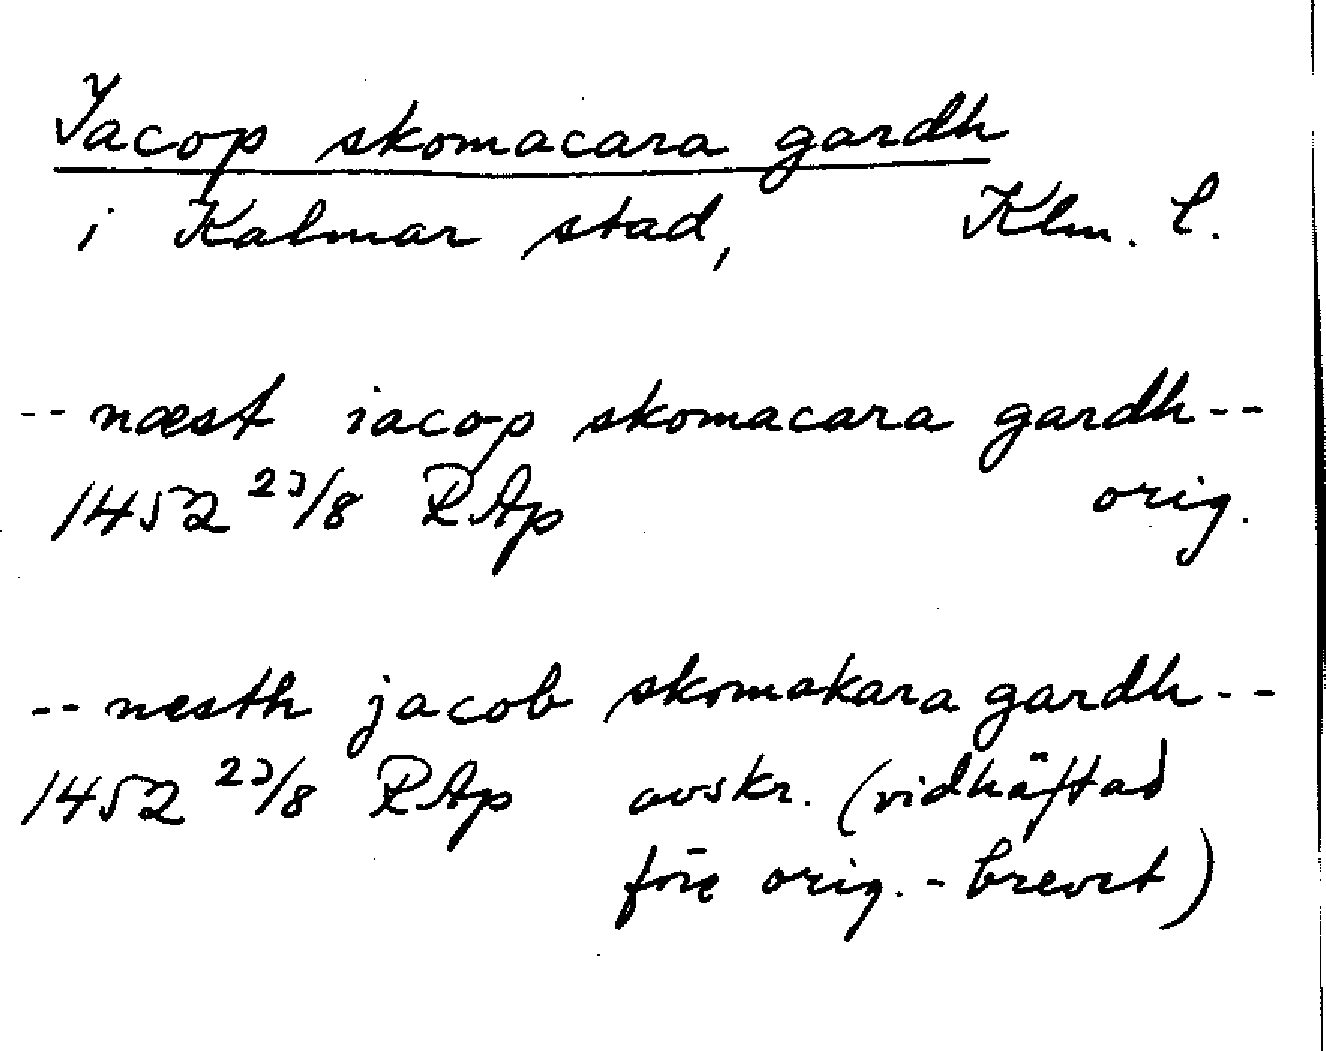 Jacop skomacara gardh
i Kalmar stad, Klm. l.
-- næst iacop skomacara gardh --
1452 23/8 RAp orig.
-- nesth jacob skomakara gardh --
1452 23/8 RAp avskr. (vidhäftad
före orig.-brevet)